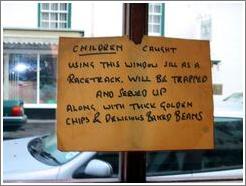 CHILDREN CAUGHT
USING THIS WINDOW SILL AS A
RACETRACK, WILL BE TRAPPED
AND SERVED UP
ALONG WITH THICK GOLDEN
CHIPS & DELICIOUS BAKED BEANS